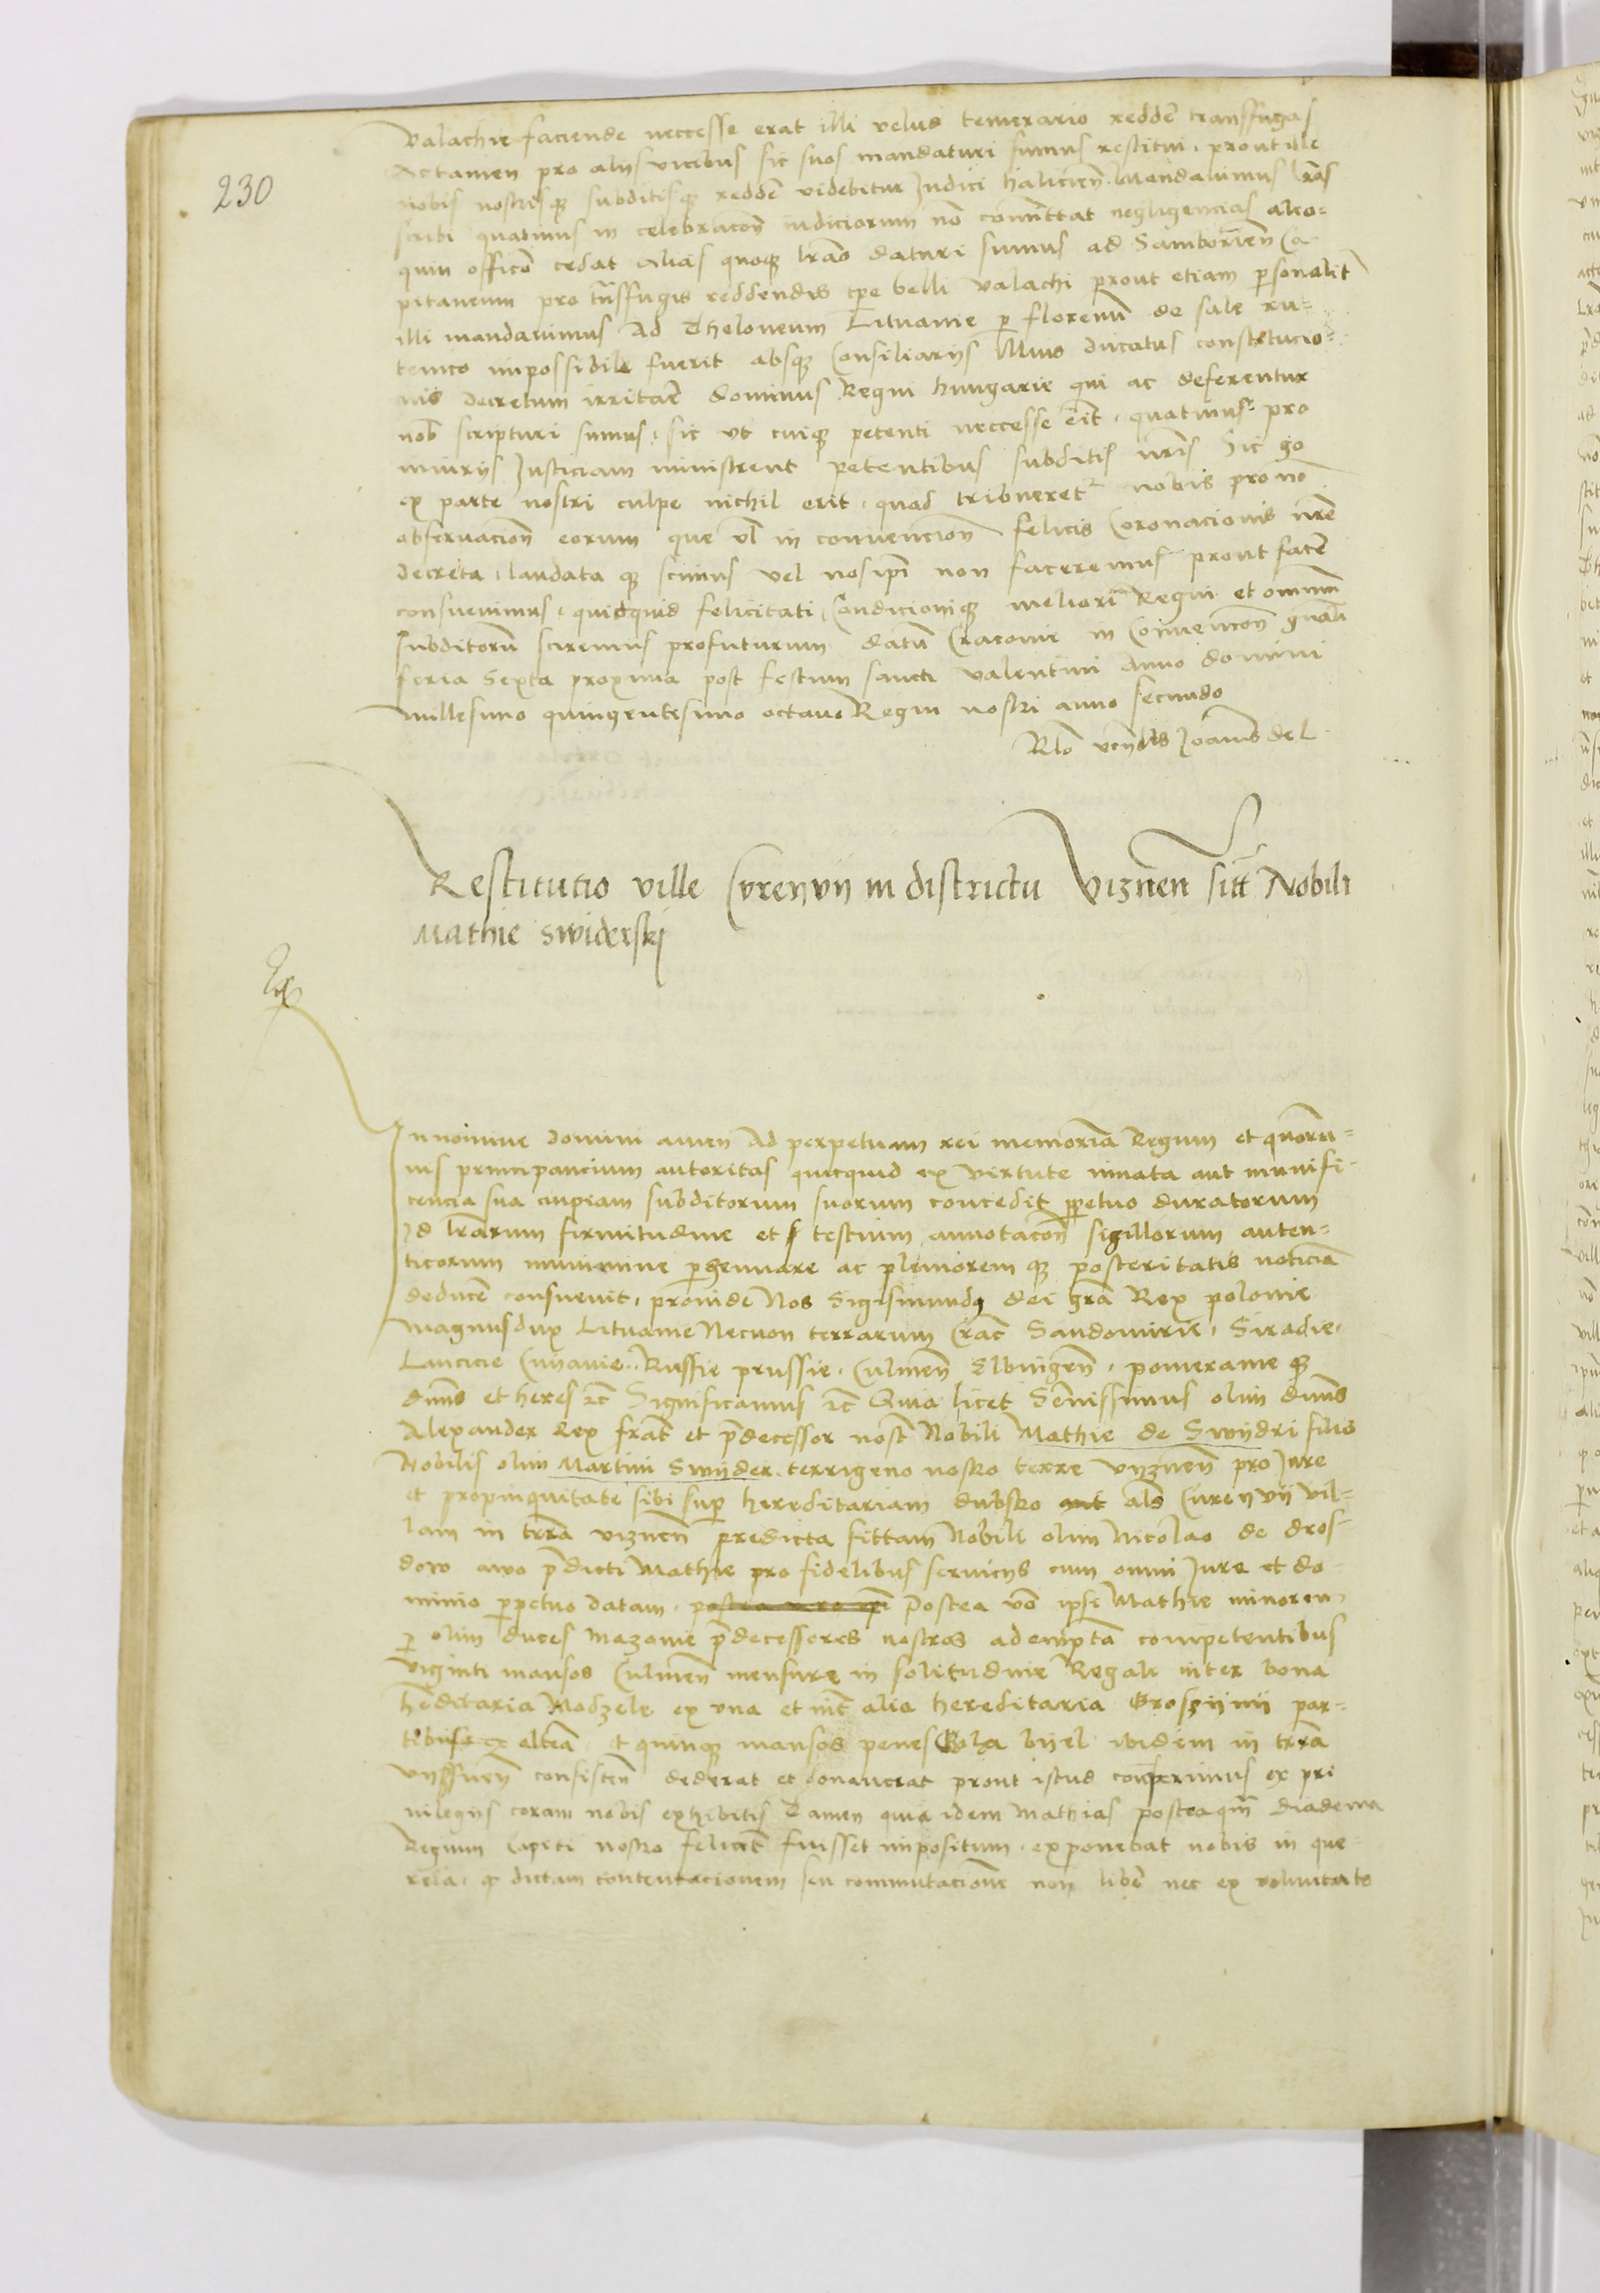 230
Valachie faciende neccesse erat illi velud temerario redde transfugas
Actamen pro alijs vicibus sic suos mandaturi sumus restitui. prout ille
nobis nostrisq subditisq redde videbitur Judici halicien. Mandavimus lras
scribi quatinus in celebracon iudiciorum no committat negligencias alio-
quin officio cedat Alias quoq lras daturi sumus ad Samborien Ca
pitaneum pro transfugis reddendis tpe belli Valachi prout etiam personalit
illi mandavimus Ad Theloneum Lituanie p florenu de sale ru-
tenico impossibile fuerit absq Consiliarijs illius ducatus constitucio-
nis decretum irritare dominus Regni hungarie qui ac deferentur
nob scripturi sumus, sic ut cuiq petenti neccesse erit, quatinus pro
iniurijs Justiciam ministrent petentibus subditis nris Sic go
ex parte nostri culpe nichil erit, quod tribueret nobis pro no
observacion eorum que vl in convencion felicis Coronacionis nre
decreta, laudata q scimus vel nos ipi non faceremus prout facere
consuevimus, quidquid felicitati, Condicioniq meliori Regni et omnium
subditoru sciremus profuturum datu Cracovie in Convencon gnali
feria Sexta proxima post festum sancti Valentini Anno domini
millesimo quingentesimo octavo Regni nostri anno secundo
Rlo venlis Joannis de L
Restitutio ville Curenyij in districtu Viznen sitt Nobili
Mathie Swiderskij
In nomine domini amen Ad perpetuam rei memoria Regum et quoru-
vis principancium autoritas quicquid ex virtute innata aut munifi-
cencia sua cuipiam subditorum suorum concedit perpetuo duratorum
Id lrarum firmitudine et testium annotacon sigillorum auten-
ticorum munimine perhennare ac pleniorem q posteritatis noticia
deducere consuevit, proinde Nos Sigismundq dei gra Rex polonie
Magnus dux Lituanie Necnon terrarum Crac Sandomirie, Siradie,
Lancicie Cuyavie, Russie prussie, Culmen Elbingen, pomeranie q
dnus et heres etc Significamus etc Quia licet Serenissimus olim dnus
Alexander Rex frat et predecessor nost Nobili Mathie de Swijdri filio
Nobilis olim Martini Swijder terrigeno nostro terre Vyznen pro Jure
et propinquitate sibi super hereditariam dubsko als Curenyij vil-
lam in terra viznen predicta sittam Nobili olim Nicolao de dros-
dow avo predicti Mathie pro fidelibus servicijs cum omni Jure et do-
minio perpetuo datam. Postea vo ipsi Mathie minoren,
p olim duces mazovie predecessores nostros ademptam competentibus
viginti mansos Culmen mensure in solitudine Regali inter bona
hereditaria Modzele ex una et int alia hereditaria Groszijmij par-
tibus ex altera et quinq mansos penes Gola bijel ibidem in terra
Vyssnen consisten dederat et donaverat prout istud comperimus ex pri
vilegijs coram nobis exhibitis Tamen quia idem Mathias posteaqm diadema
Regium capiti nostro felicit fuisset impositum, exponebat nobis in que-
rela, q dictam contentacionem seu commutacione non libere nec ex voluntate